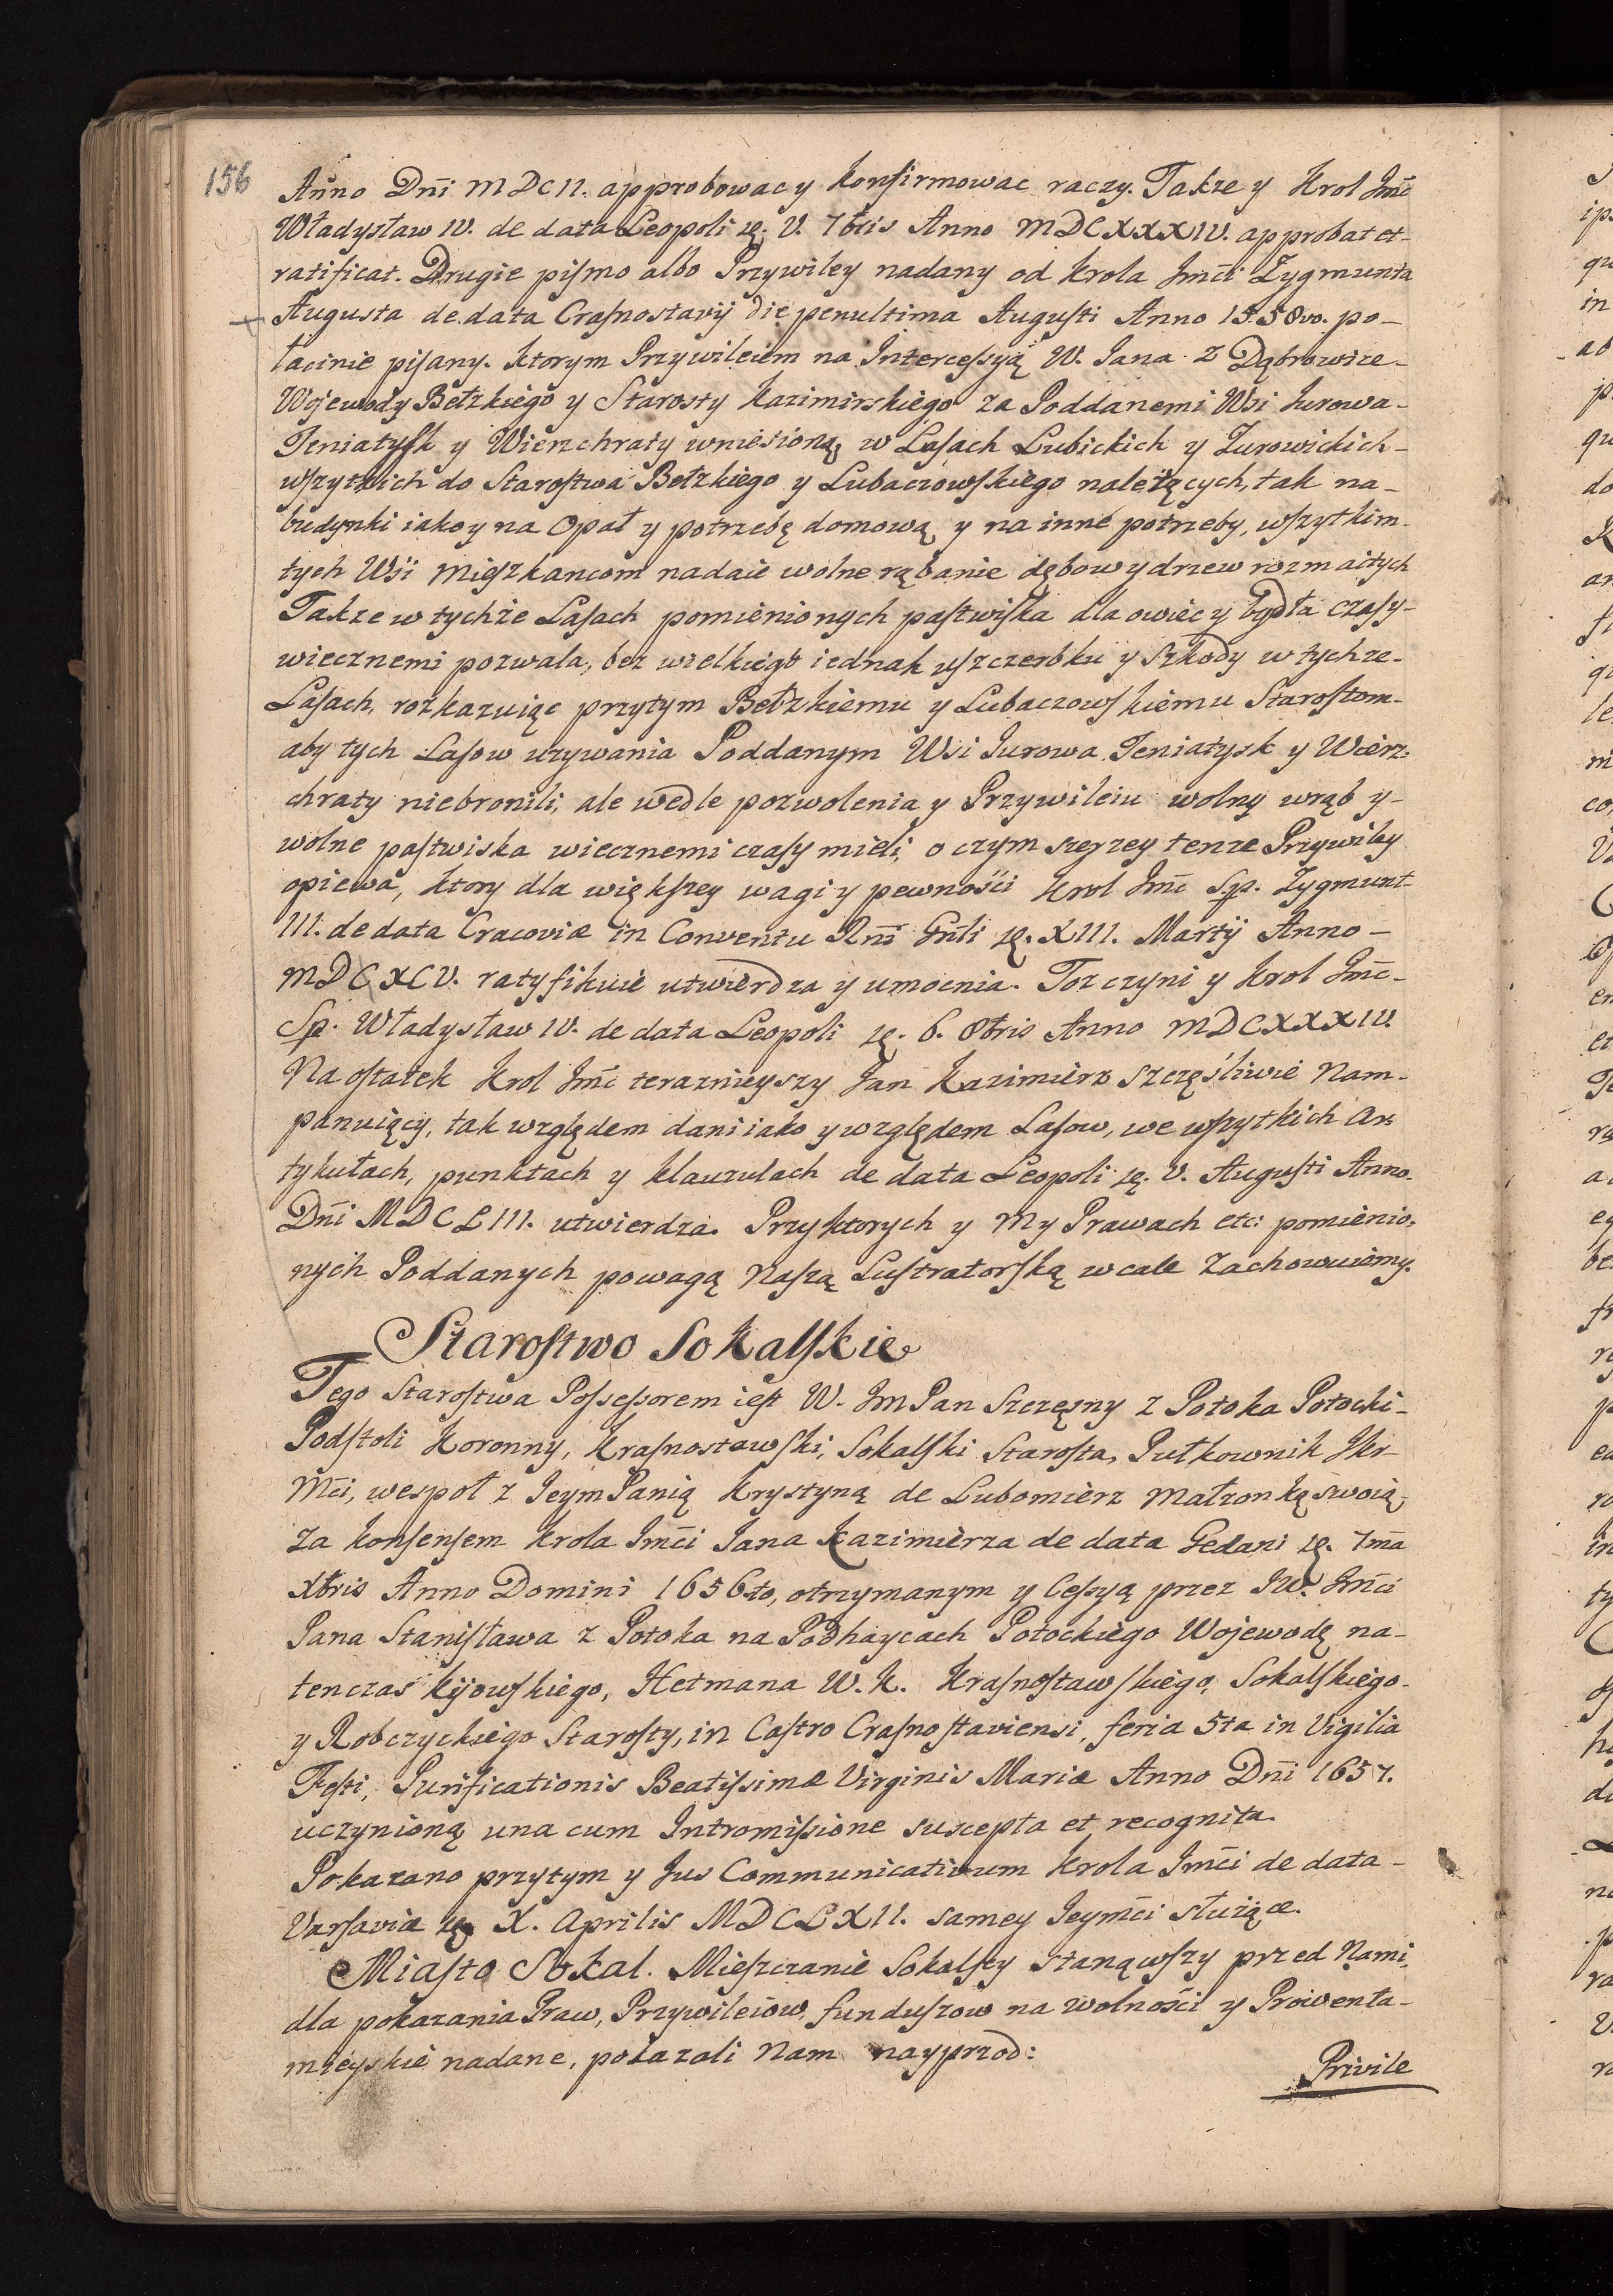 156
Anno Dni MDCII. approbowac y konfirmowac raczy. Takze y Krol Jmć
Władysław IV. de data Leopoli V. 7bris Anno MDCXXXIV. approbat et-
ratificat. Drugie piſmo albo Przywiley nadany od Krola Jmći Zygmunta
Augusta de data Craſnostavij die penultima Auguſti Anno 1558vo. po-
łacinie piſany. Ktorym Przywileiem na Interceſsyją W. Jana Z Dąbrowice-
Wojewody Bełzkiego y Starosty Kazimirskiego za Poddanemi Wsi Jurowa-
Teniatyſk y Wierzchraty wniesioną, w Laſach Lubickich y Zurowickich-
wſzytkich do Staroſtwa Bełzkiego y Lubaczowſkiego należących, tak na-
budynki iako y na Opał y potrzebę domową, y na inne potrzeby, wſzytkim
tych Wśi Mieſzkancom nadaie wolne rąbanie dębow y drzew rozmaitych
Takze w tychże Laſach pomienionych paſtwiſka dla owiec y bydła czaſy-
wiecznemi pozwala, bez wielkiego iednak uſzczerbku y Szkody w tychze-
Laſach, rozkazuiąc przytym Bełzkiemu y Lubaczowſkiemu Staroſtom-
aby tych Laſow uzywania Poddanym Wsi Jurowa, Teniatysk y Wierz-
chraty niebronili, ale wedle pozwolenia y Przywileiu wolny wrąb y-
wolne paſtwiska wiecznemi czaſy mieli, o czym szerzey tenze Przywiley
opiewa, ktory dla więkſzey wagi y pewnośći Krol Jmć Sp. Zygmunt
III. de data Cracoviæ in Conventu Rni Gnli XIII. Martij Anno-
MDCXCV. ratyfikuie utwierdza y umocnia. Toz czyni y Krol Jmć-
Sp. Władysław IV. de data Leopoli 6. 8bris Anno MDCXXXIV.
Na oſtatek Krol Jmć terazniejszy Jan Kazimierz Szczęśliwie Nam-
panuiący, tak względem dani iako y względem Laſow, we wſzytkich Ar-
tykułach, punktach y klauzulach de data Leopoli V. Auguſti Anno.
Dni MDCLIII. utwierdza. Przy ktorych y My Prawach etc: pomienio-
nych Poddanych powagą Naſzą Luſtratorſką w cale Zachowuiemy.
Staroſtwo Sokalſkie
Tego Staroſtwa Poſseſsorem ieſt W. Jm Pan Szczęsny z Potoka Potocki-
Podſtoli Koronny, Kraſnostawſki, Sokalſki Staroſta, Pułkownik JKr-
Mći, wespoł z JeymPanią Krystyną de Lubomierz Małzonką swoią-
Za konſenſem Krola Jmći Jana Kazimierza de data Gedani 7ma
xbris Anno Domini 1656to, otrzymanym y Ceſsyą przez JW. Jmći
Pana Staniſława z Potoka na Podhaycach Potockiego Wojewodę na-
tenczas Kijowſkiego, Hetmana W. K. Kraſnoſtawſkiego, Sokalſkiego-
y Robczyckiego Staroſty, in Caſtro Craſnoſtaviensi, feria 5ta in Vigilia
Feſti, Purificationis Beatiſsimæ Virginis Mariæ Anno Dni 1657.
uczynioną una cum Intromiſsione suscepta et recognita.
Pokazano przytym y Jus Communicativum Krola Jmći de data-
Varſaviæ X. Aprilis MDCLXII. samey Jeymći służące.
Miaſto Sokal. Mieſzczanie Sokalſcy stanąwſzy przed Nami,
dla pokazania Praw, Przywileiow, funduſzow na wolności y Proventa-
mieyskie nadane, pokazali Nam nayprzod:
Privile